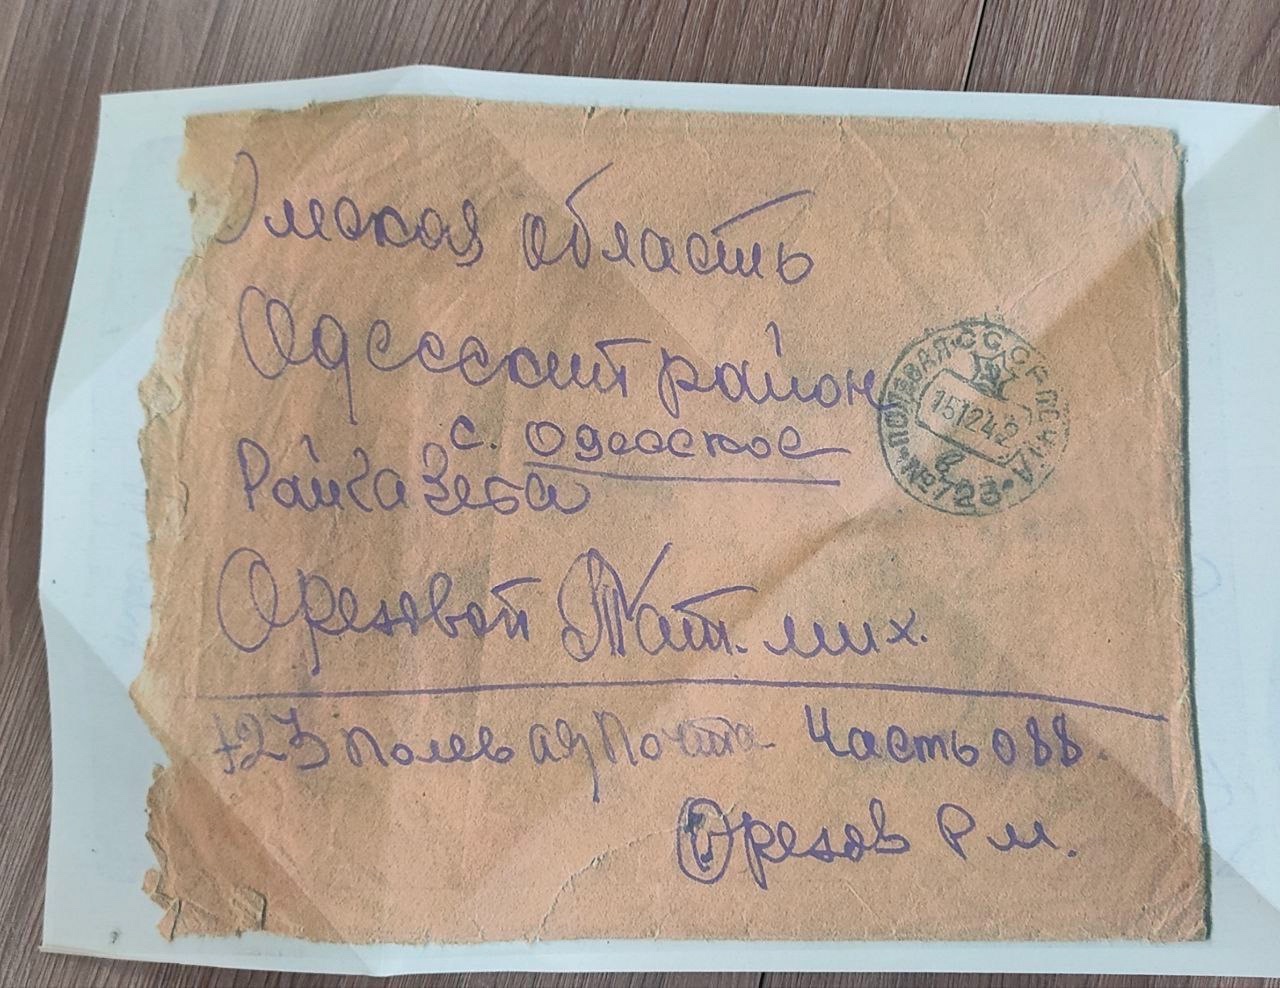 Омская область
Одесский район
с. Одесское
Райгазета
Орезовой Тат. мих.
723 Полевая Почта Часть 088.
Орезов Р м.
ПОЛЕВАЯ СССР ПОЧТА
15 12 42
№723